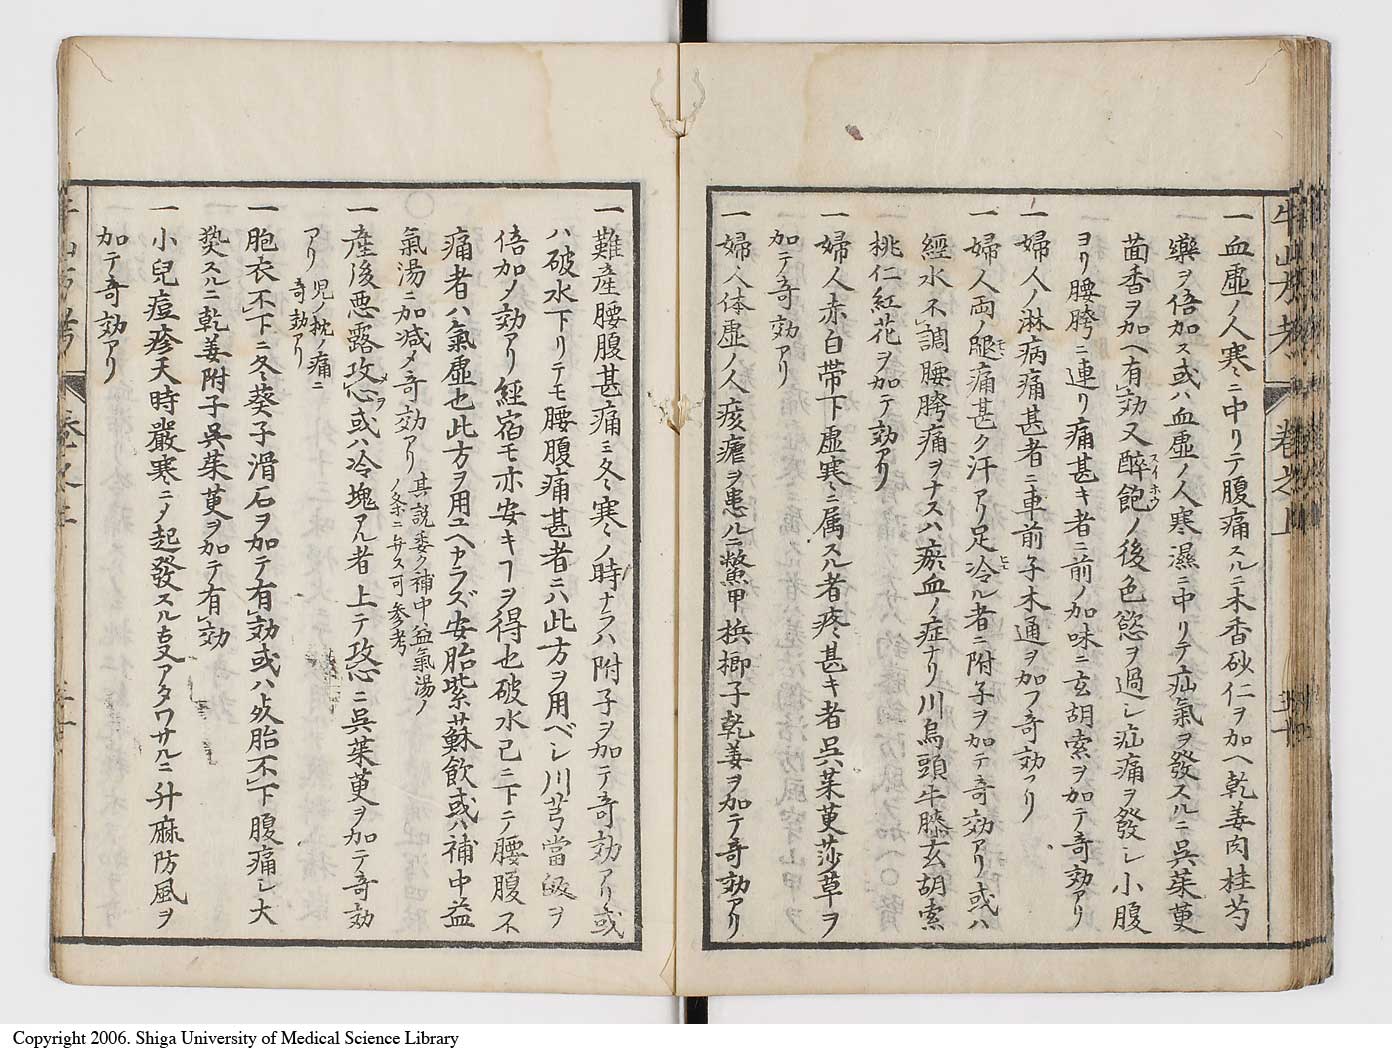 一血虚ノ人寒ニ中リテ腹痛スルニ木香砂仁ヲ加ヘ乾姜肉桂芍
藥ヲ倍加ス或ハ血虚ノ人寒濕ニ中リテ疝氣ヲ發スルニ呉茱萸
茴香ヲ加ヘ有効又醉飽ノ後色慾ヲ過シ疝痛ヲ發シ小腹
スイホウ
ヨリ腰胯ニ連リ痛甚キ者ニ前ノ加味ニ玄胡索ヲ加テ奇効アリ
一婦人ノ淋病痛甚者ニ車前子木通ヲ加フ奇効アリ
一婦人両ノ腿痛甚ク汗アリ足冷ル者ニ附子ヲ加テ奇効アリ或ハ
經水不調腰胯痛ヲナスハ瘀血ノ症ナリ川烏頭牛膝玄胡索
桃仁紅花ヲ加テ効アリ
一婦人赤白帯下虚寒ニ属スル者疼甚キ者呉茱萸莎草ヲ
加テ奇効アリ
一婦人体虚ノ人痎瘧ヲ患ルニ鱉甲梹榔子乾姜ヲ加テ奇効アリ
牛山方考 卷之上
一難産腰腹甚痛ミ冬寒ノ時ナラハ附子ヲ加テ奇効アリ或
ハ破水下リテモ腰腹痛甚者ニハ此方ヲ用ベシ川芎當皈ヲ
倍加ノ効アリ經宿モ亦安キヿヲ得也破水已ニ下テ腰腹不
痛者ハ氣虚也此方ヲ用ユヘカラズ安胎紫蘇飲或ハ補中益
氣湯ニ加减メ奇効アリ
其説委ク補中益氣湯ノ
ノ条ニ弁ス可参考
一産後悪露攻心或ハ冷塊アル者上テ攻心ニ呉茱萸ヲ加テ奇効
アリ
児ノ枕ノ痛ニ
奇効アリ
一胞衣不下ニ冬葵子滑石ヲ加テ有効或ハ死胎不下腹痛シ大
熱スルニ乾姜附子呉茱萸ヲ加テ有効
一小兒痘疹天時嚴寒ニメ起發スル叓アタワサルニ升麻防風ヲ
加テ奇効アリ
Copyright 2006. Shiga University of Medical Science Library